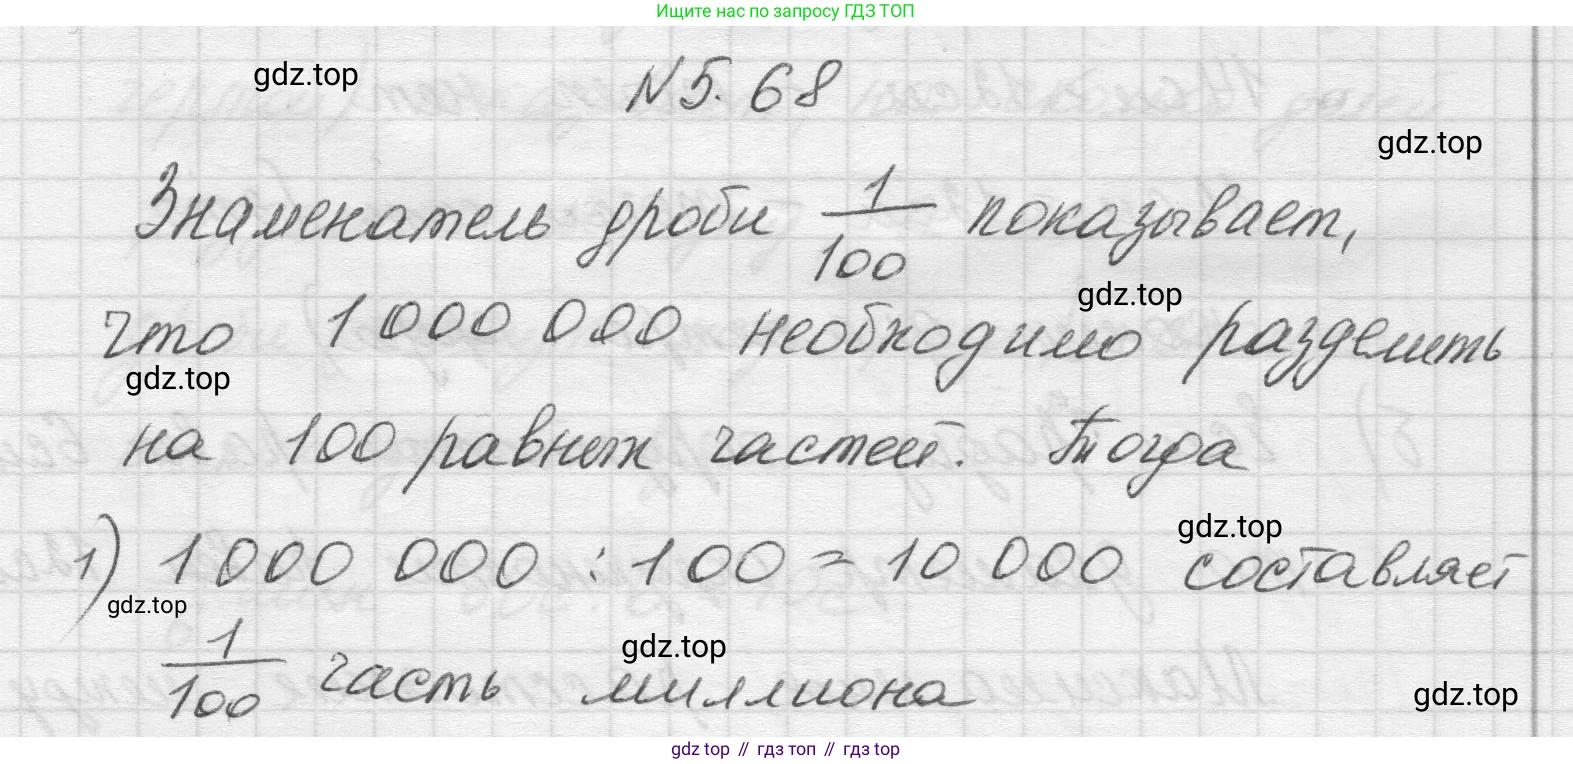 Ищите нас по запросу ГДЗ ТОП
gdz.top
№ 5.68
gdz.top
Знаменатель дроби 1/100 показывает,
gdz.top
что 1 000 000 необходимо разделить
gdz.top
на 100 равных частей. Тогда
gdz.top
1) 1 000 000 : 100 = 10 000 составляет
gdz.top
1/100 часть миллиона
gdz.top
gdz.top
gdz top // гдз топ // гдз top